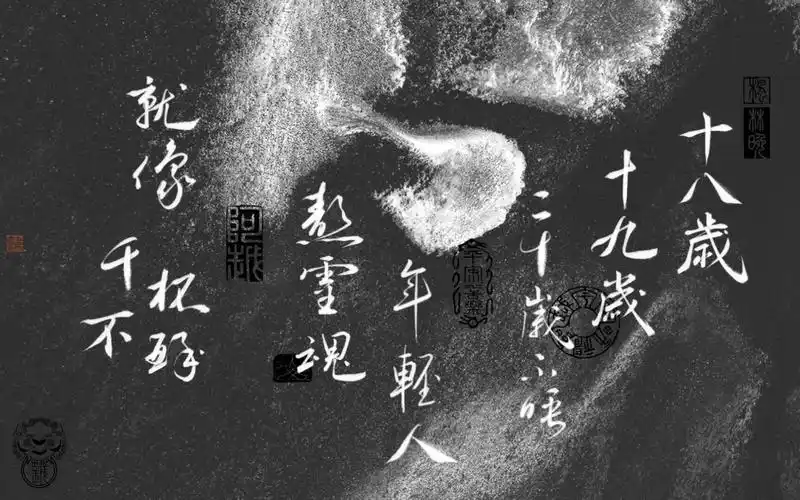 十八歲
十九歲
二十歲不睡
年輕人
熬靈魂
就像
千杯不醉